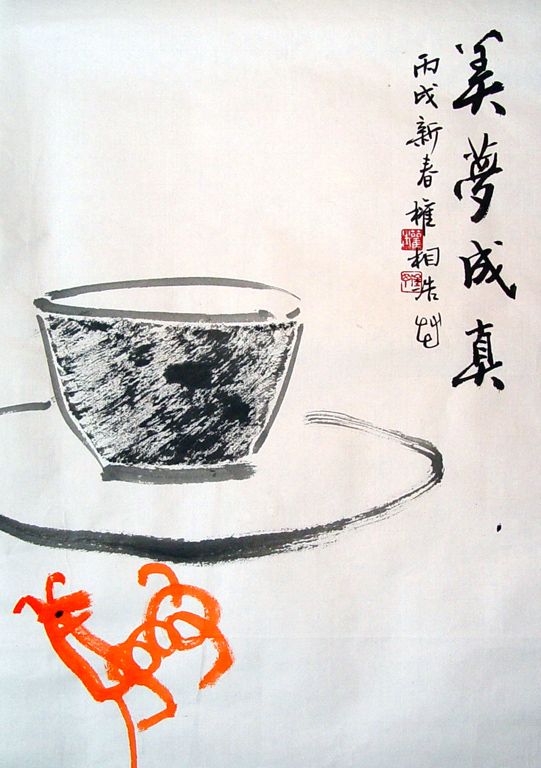 美夢成真
丙戌新春權相浩